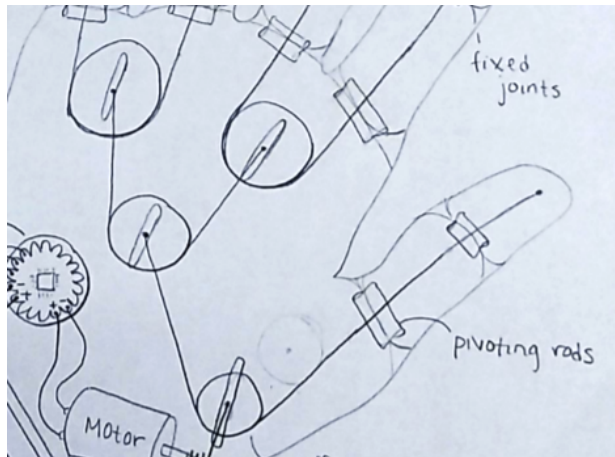 fixed
joints
pivoting rods
Motor